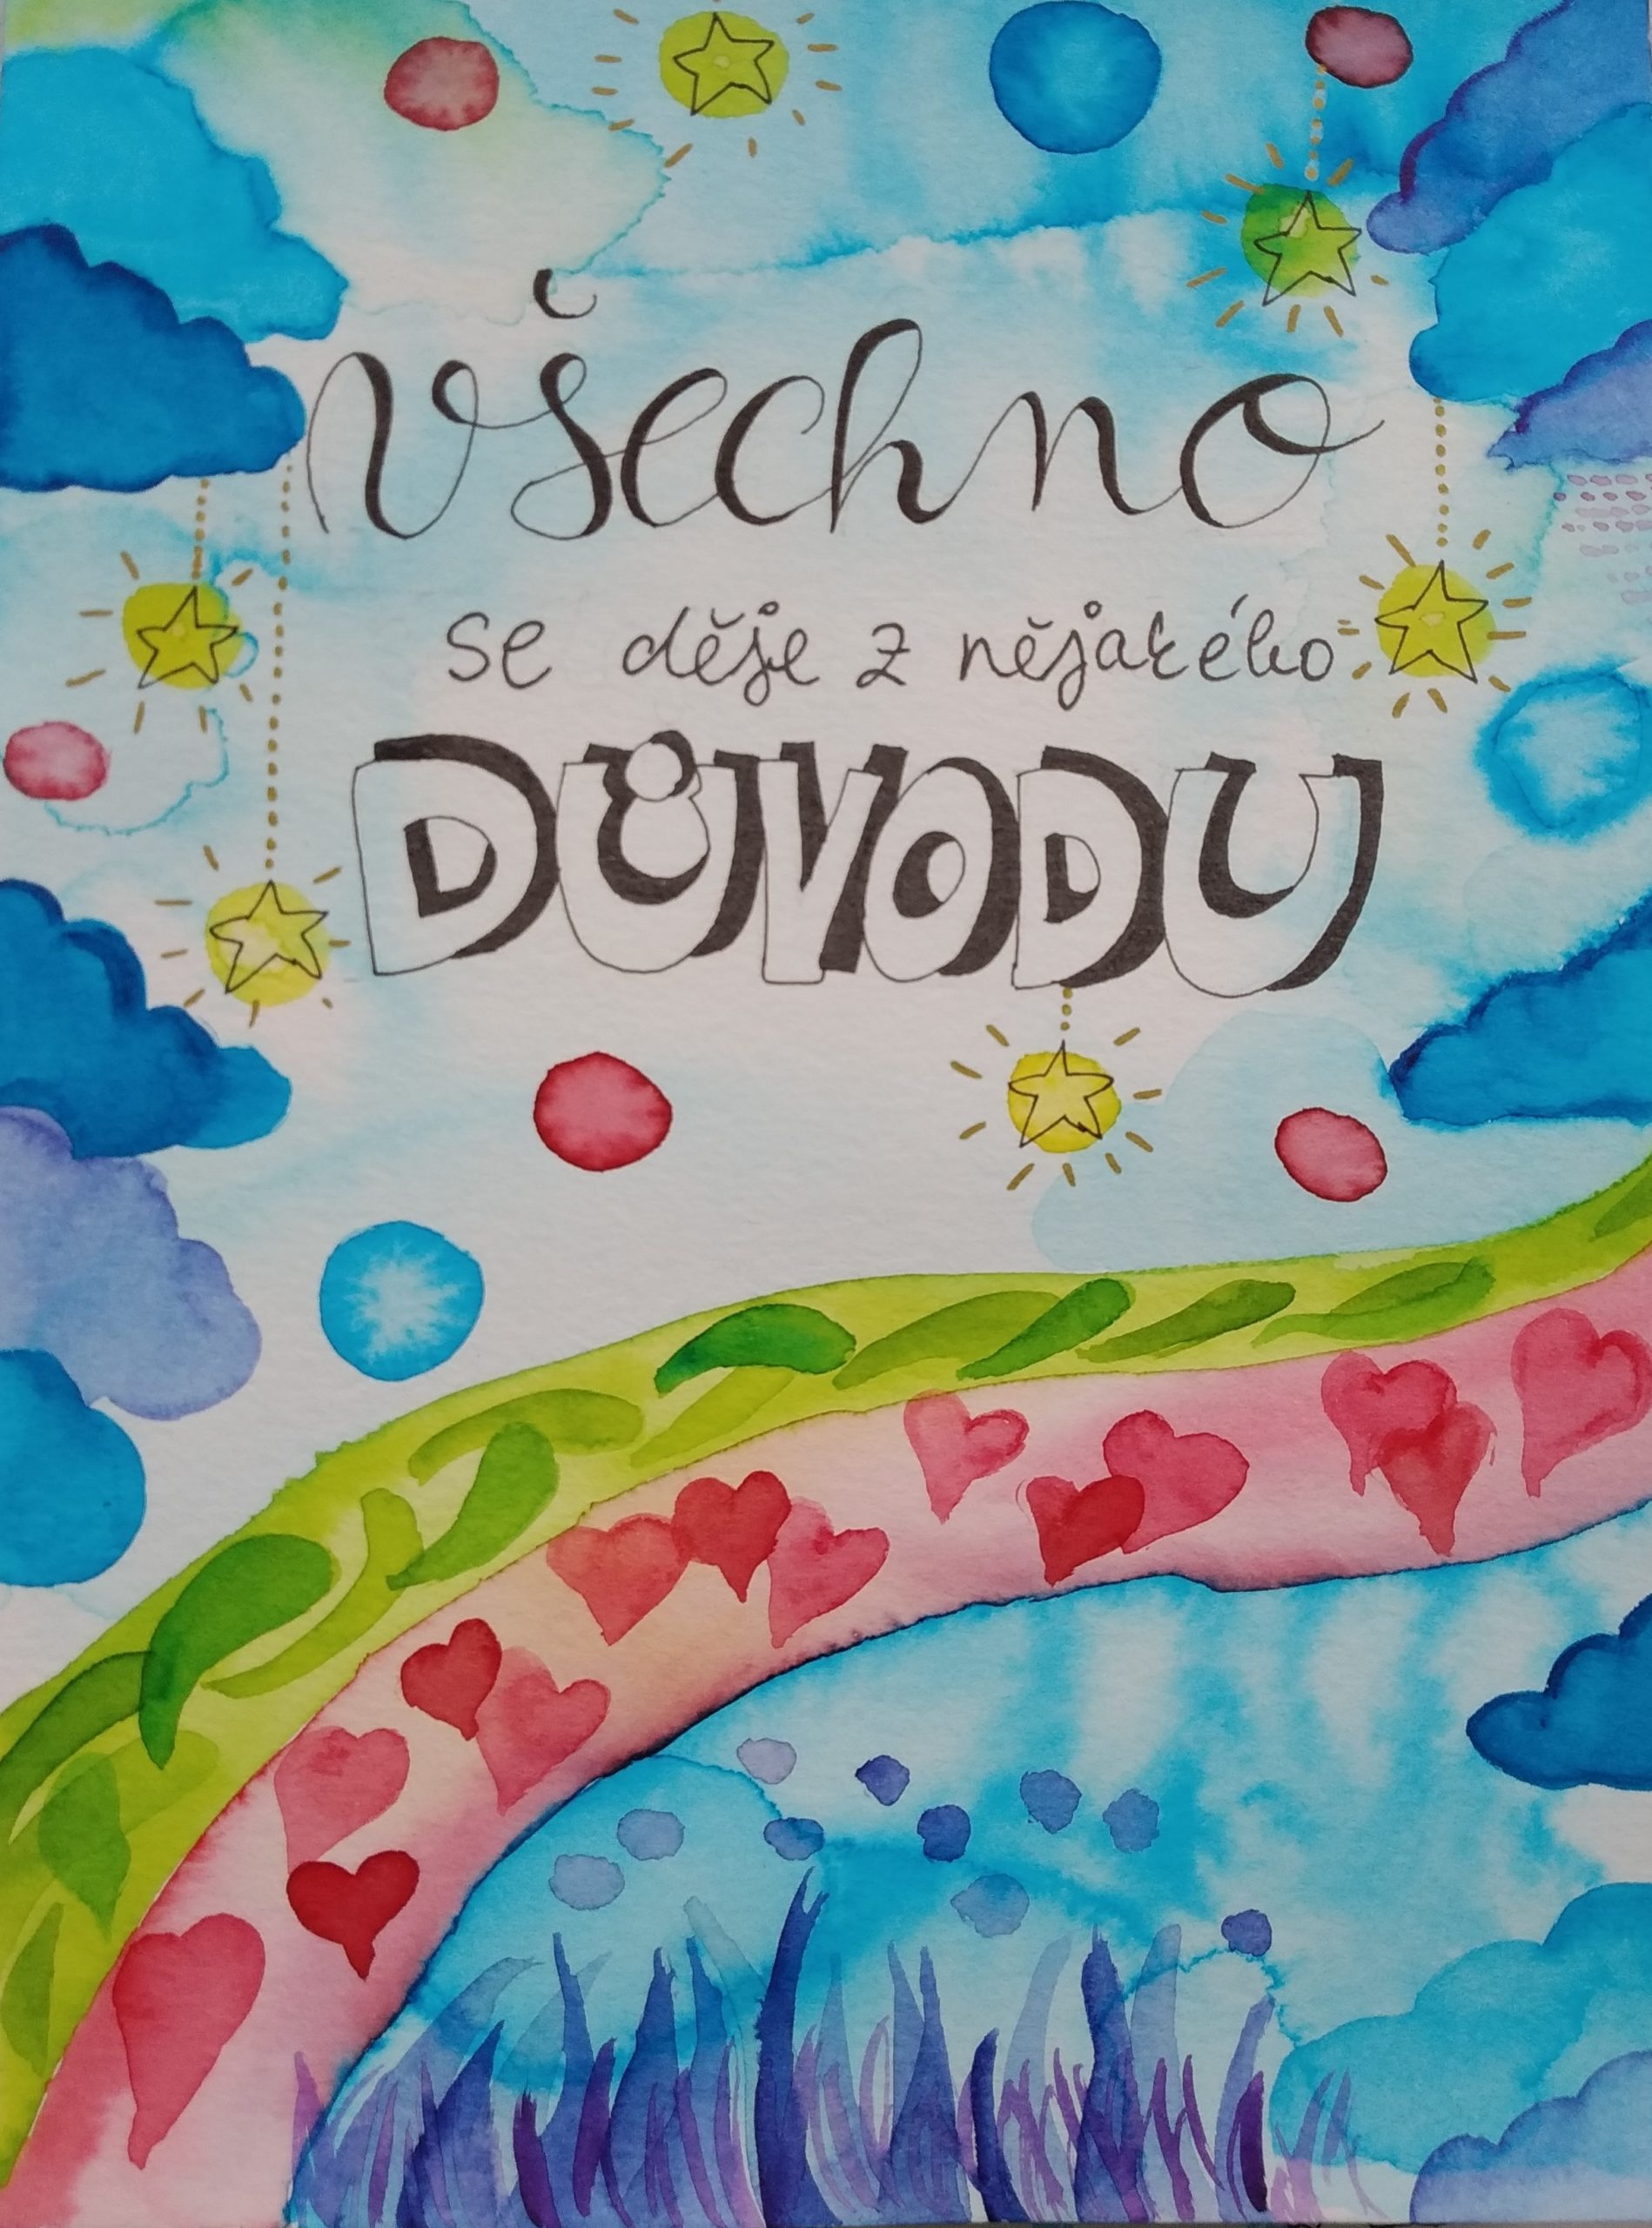 Všechno
se děje z nějakého
DŮVODU